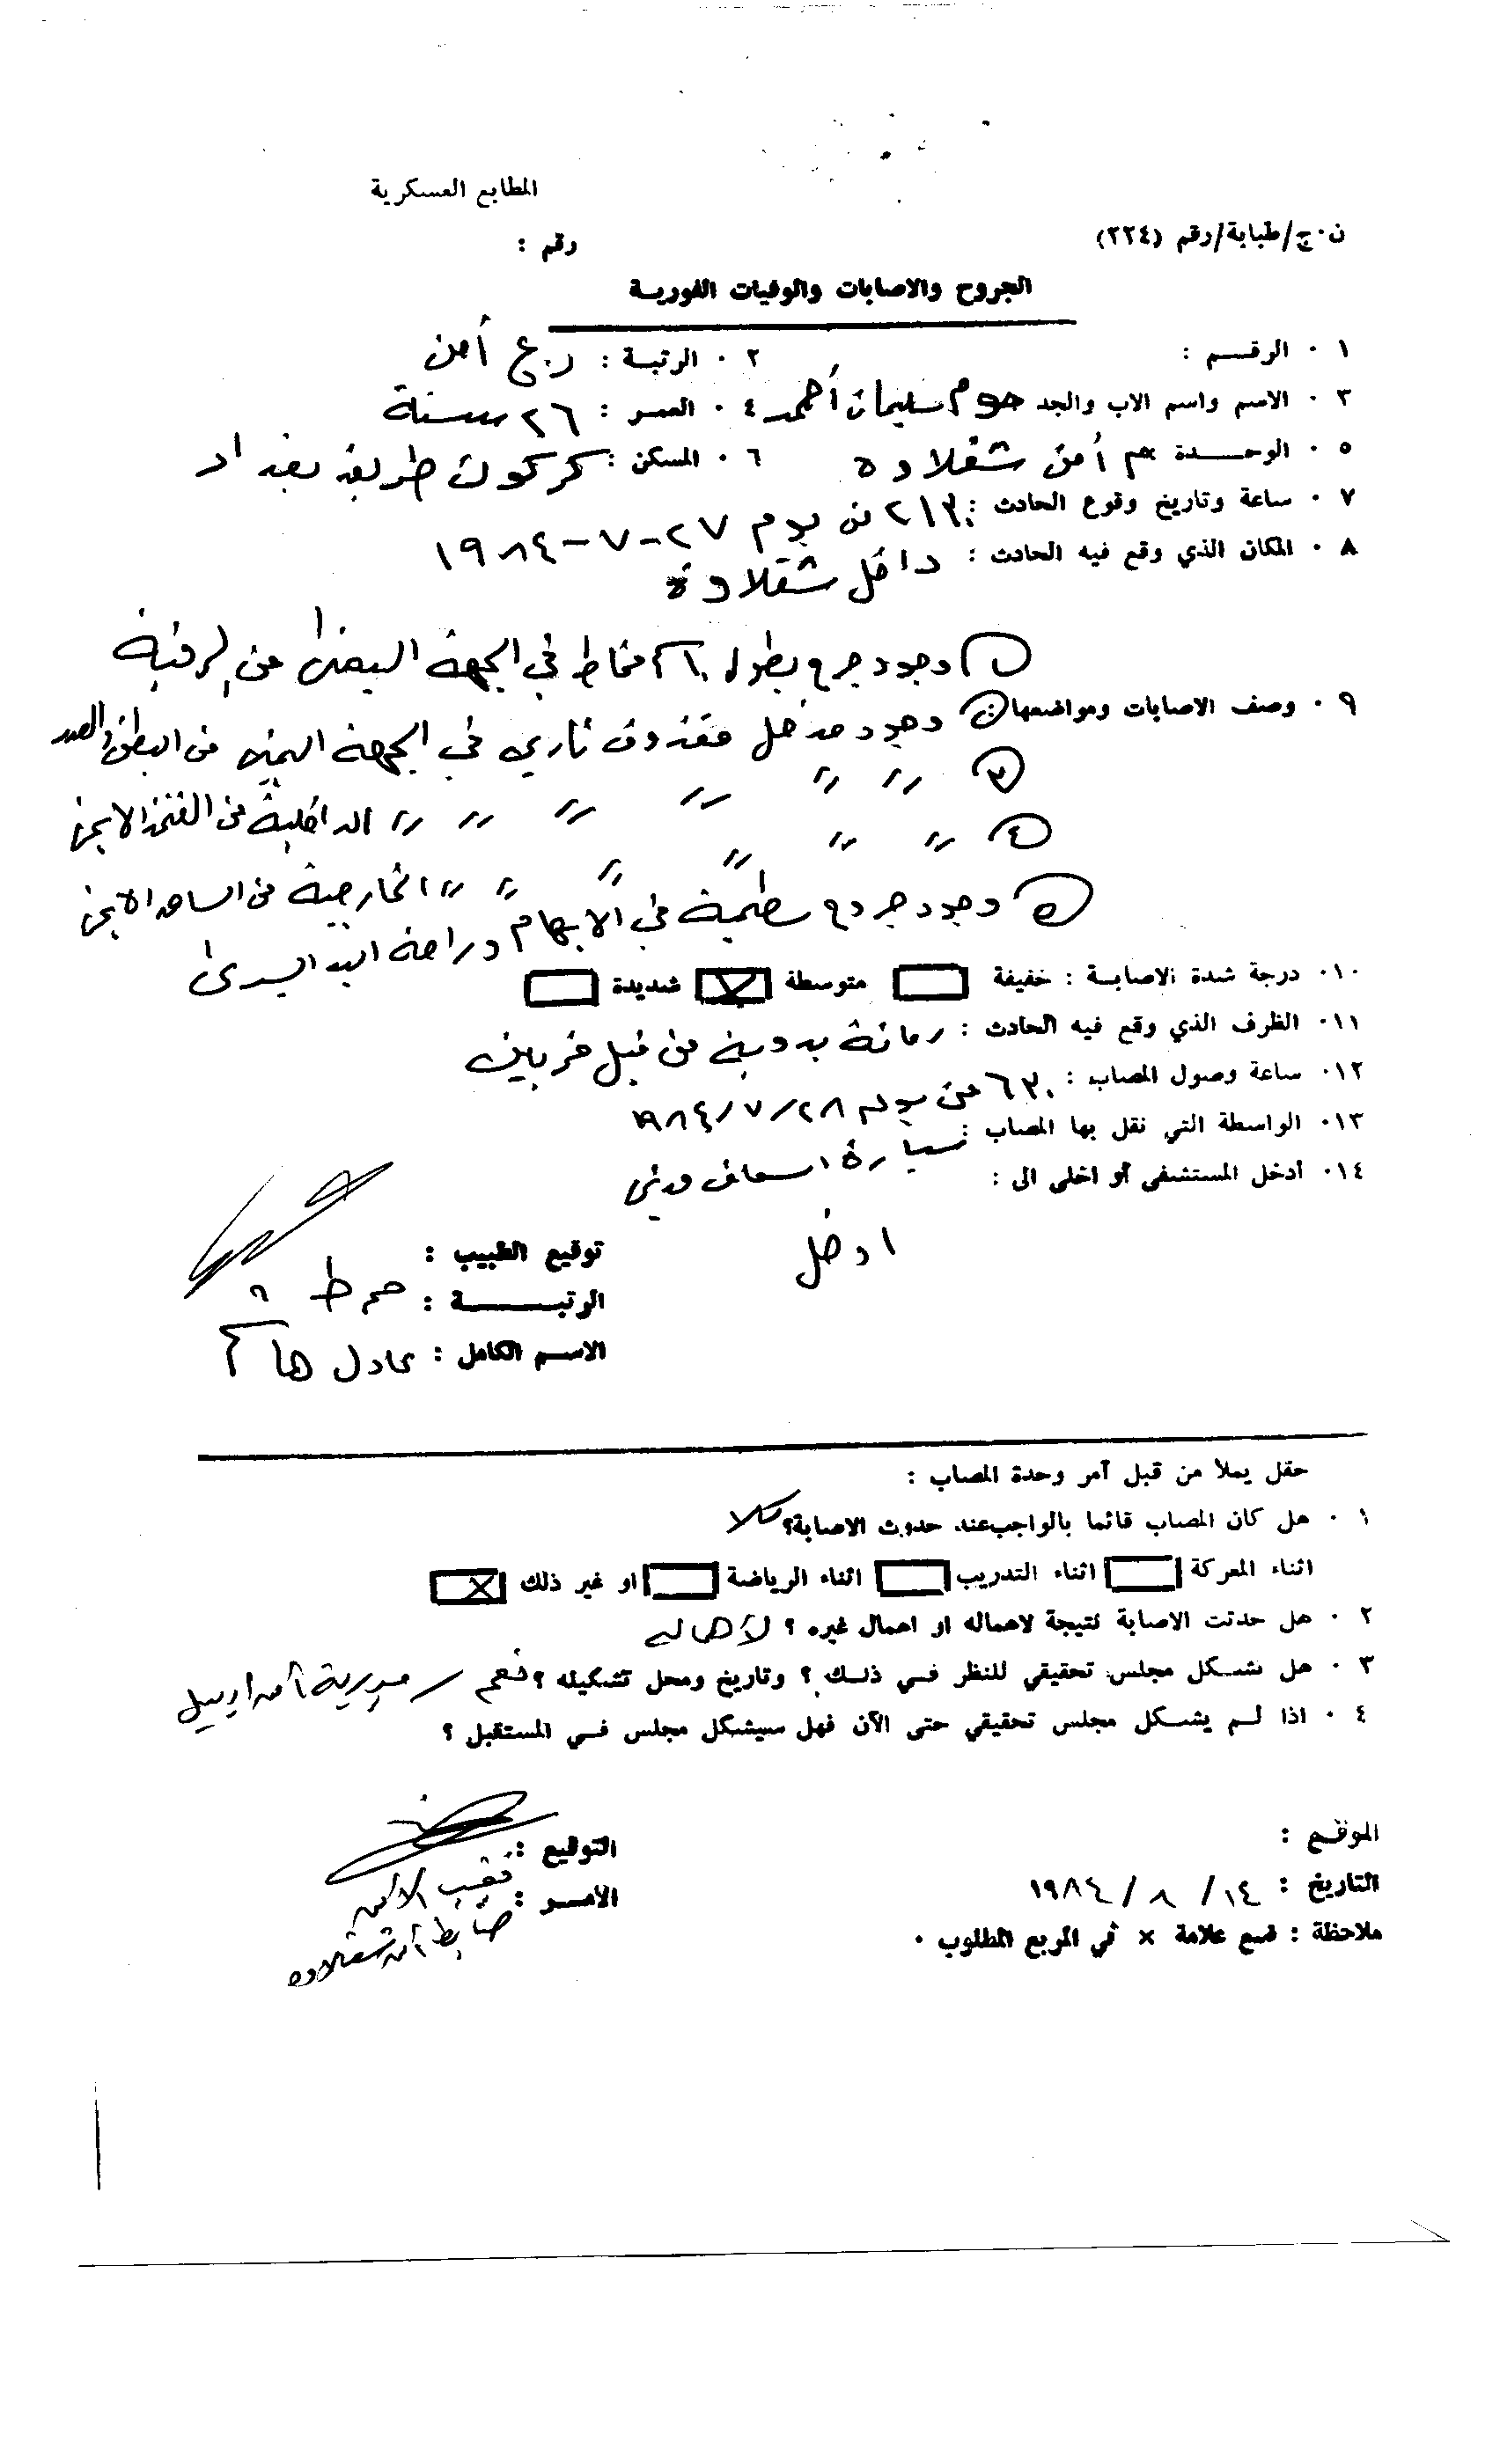 المطابع العسكرية
ن٠ج/طبابة/رقم (٢٢٤)
رقم :
الجروح والاصابات والوفيات الفورية
١ ٠ الرقم :
٢ ٠ الرتبة : ر.ع أمن
٣ ٠ الاسم واسم الاب والجد سليمان أحمد
٤ ٠ العمر : ٢٦ سنة
٥ ٠ الوحدة أمن شقلاوه
٦ ٠ المسكن : كركوك طريق بغداد
٧ ٠ ساعة وتاريخ وقوع الحادث : ٢١٣٠ من يوم ٢٧-٧-١٩٨٤
٨ ٠ المكان الذي وقع فيه الحادث : داخل شقلاوة
① وجود جرح بطول مخاط في الجهة اليمنى من الرقبة
٩ ٠ وصف الاصابات ومواضعها ② وجود مدخل مقذوف ناري في الجهة اليمنى من البطن والصدر
③ 〃 〃 〃 〃 〃 〃 الداخلية من الفخذ الايمن
④ 〃 〃 〃 〃 〃 〃 الخارجية من الساعد الايمن
⑤ وجود جروح سطحية في الابهام وراحة اليد اليسرى
١٠٠ درجة شدة الاصابة : خفيفة متوسطة ☒ شديدة
١١٠ الظرف الذي وقع فيه الحادث : رمانة يدوية من قبل مخربين
١٢٠ ساعة وصول المصاب : ٦٣٠ من يوم ٢٨/٧/١٩٨٤
١٣٠ الواسطة التي نقل بها المصاب : سيارة اسعاف مدني
١٤٠ أدخل المستشفى أو اخلى الى :
ادخل
توقيع الطبيب :
الرتبة : ط
الاسم الكامل : عادل هاشم
حقل يملأ من قبل آمر وحدة المصاب :
١ ٠ هل كان المصاب قائما بالواجب عند حدوث الاصابة؟ كلا
اثناء المعركة اثناء التدريب اثناء الرياضة او غير ذلك ☒
٢ ٠ هل حدثت الاصابة نتيجة لاهماله او اهمال غيره ؟
٣ ٠ هل شكل مجلس تحقيقي للنظر في ذلك ؟ وتاريخ ومحل تشكيله ؟ نعم مديرية أمن اربيل
٤ ٠ اذا لم يشكل مجلس تحقيقي حتى الآن فهل سيشكل مجلس في المستقبل ؟
الموقع :
التوقيع :
التاريخ : ١٤/ ٨/ ١٩٨٤
الآمر : نقيب الامن
ضابط أمن شقلاوه
ملاحظة : ضع علامة × في المربع المطلوب ٠